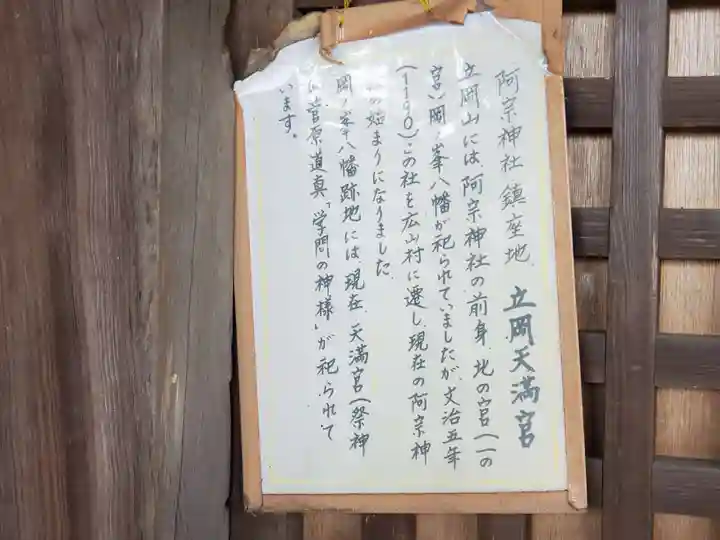 阿宗神社鎮座地 立岡天満宮
立岡山には、阿宗神社の前身、北の宮(一の
宮)岡ノ峯八幡が祀られていましたが、文治五年
(1190)この社を広山村に遷し、現在の阿宗神
の始まりになりました。
岡ノ峯八幡跡地には、現在、天満宮(祭神
菅原道真「学問の神様」が祀られて
います。